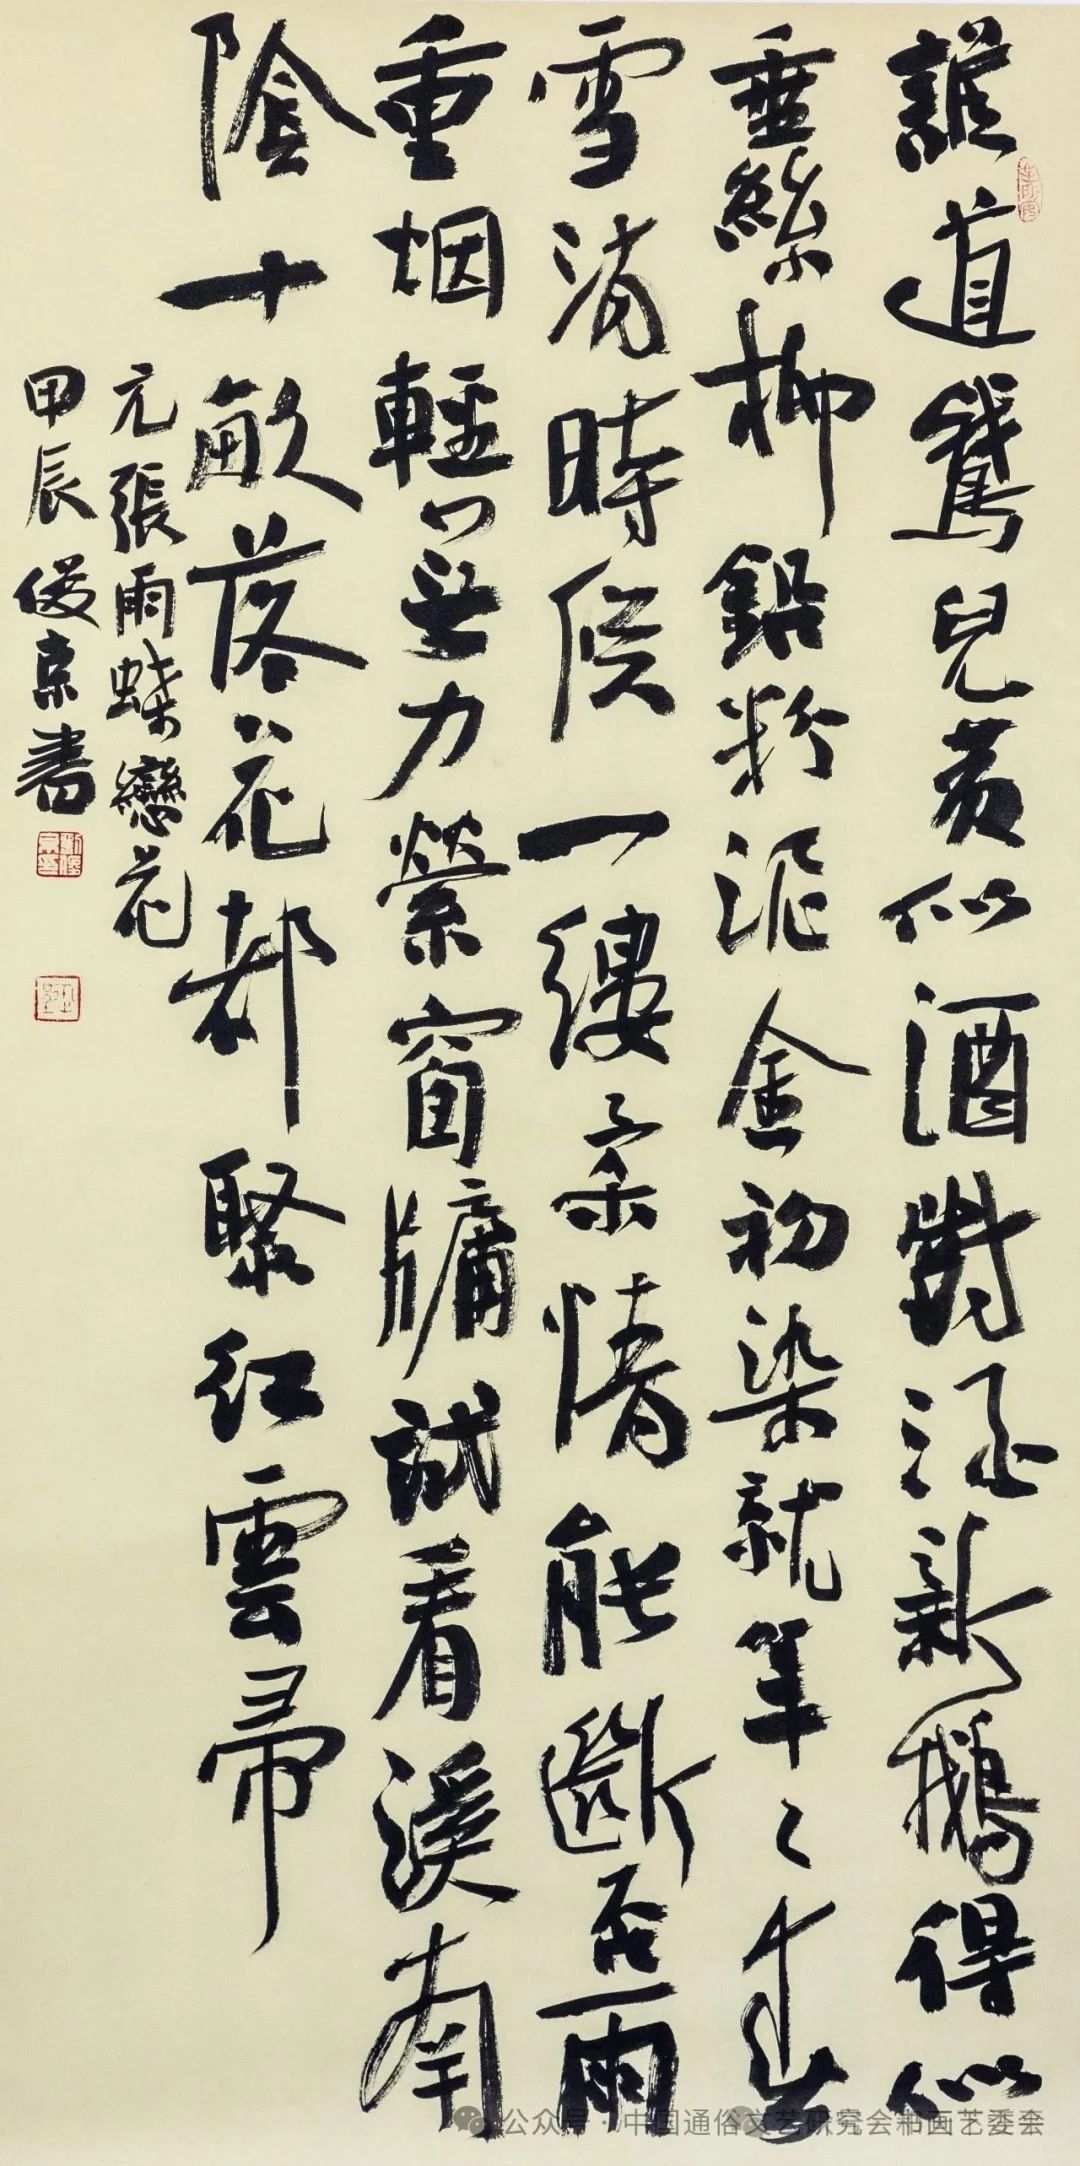 誰道鵞兒黄似酒對酒新鵝得似
垂絲柳鉛粉泥金初染就年〻春
雪消時候一縷柔情能斷否雨
重烟輕無力縈窗牖試看溪南
陰十畝落花都聚紅雲帚
元張雨蝶戀花
甲辰俊京書
公众号·中国通俗文艺研究会书画艺委会